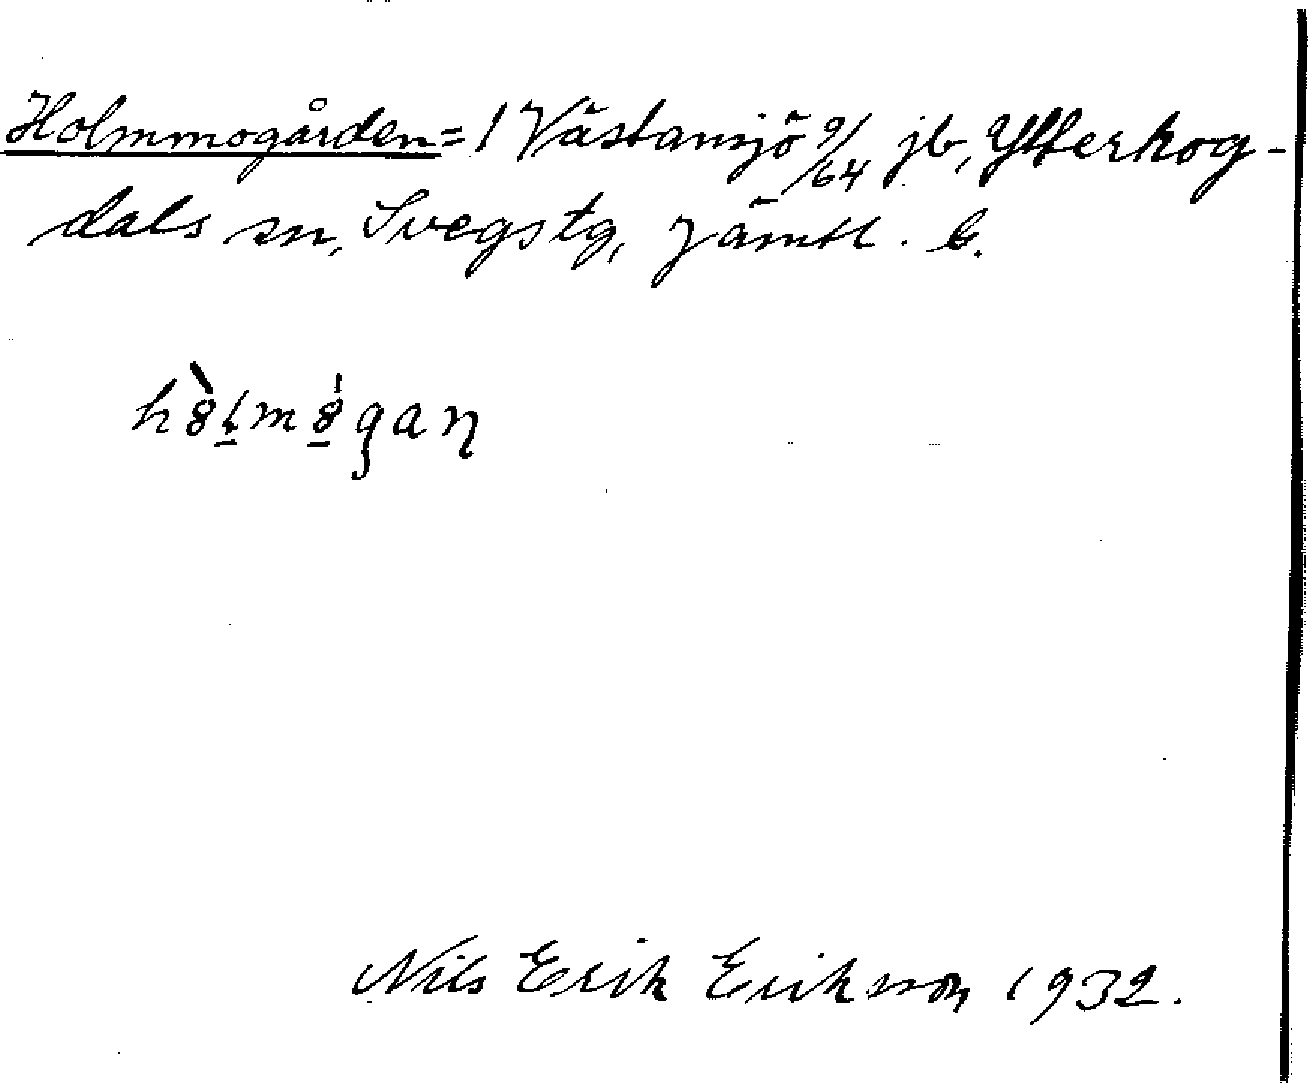 Holmmogården = 1 Västansjö 9/64 jb, Ytterhog-
dals sn, Svegs tg, Jämtl. l.
Nils Erik Eriksson 1932.